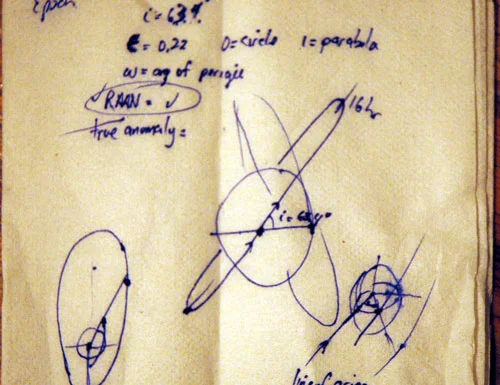 Epoch
i = 63.4°
e = 0,22 0=circle 1=parabola
ω = arg of perigie
RAAN = ✓
true anomaly =
16 hr
i = 63.4°